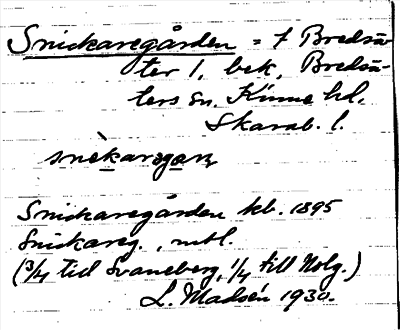 Snickaregården = f Bredsä-
ter 1, bek, Bredsä-
ters sn, Kinne hd,
Skarab. l.
Snickaregården kb. 1895
Snickareg., mtl.
(3/4 till Svaneberg, 1/4 till Holg.)
L. Madsén 1930.